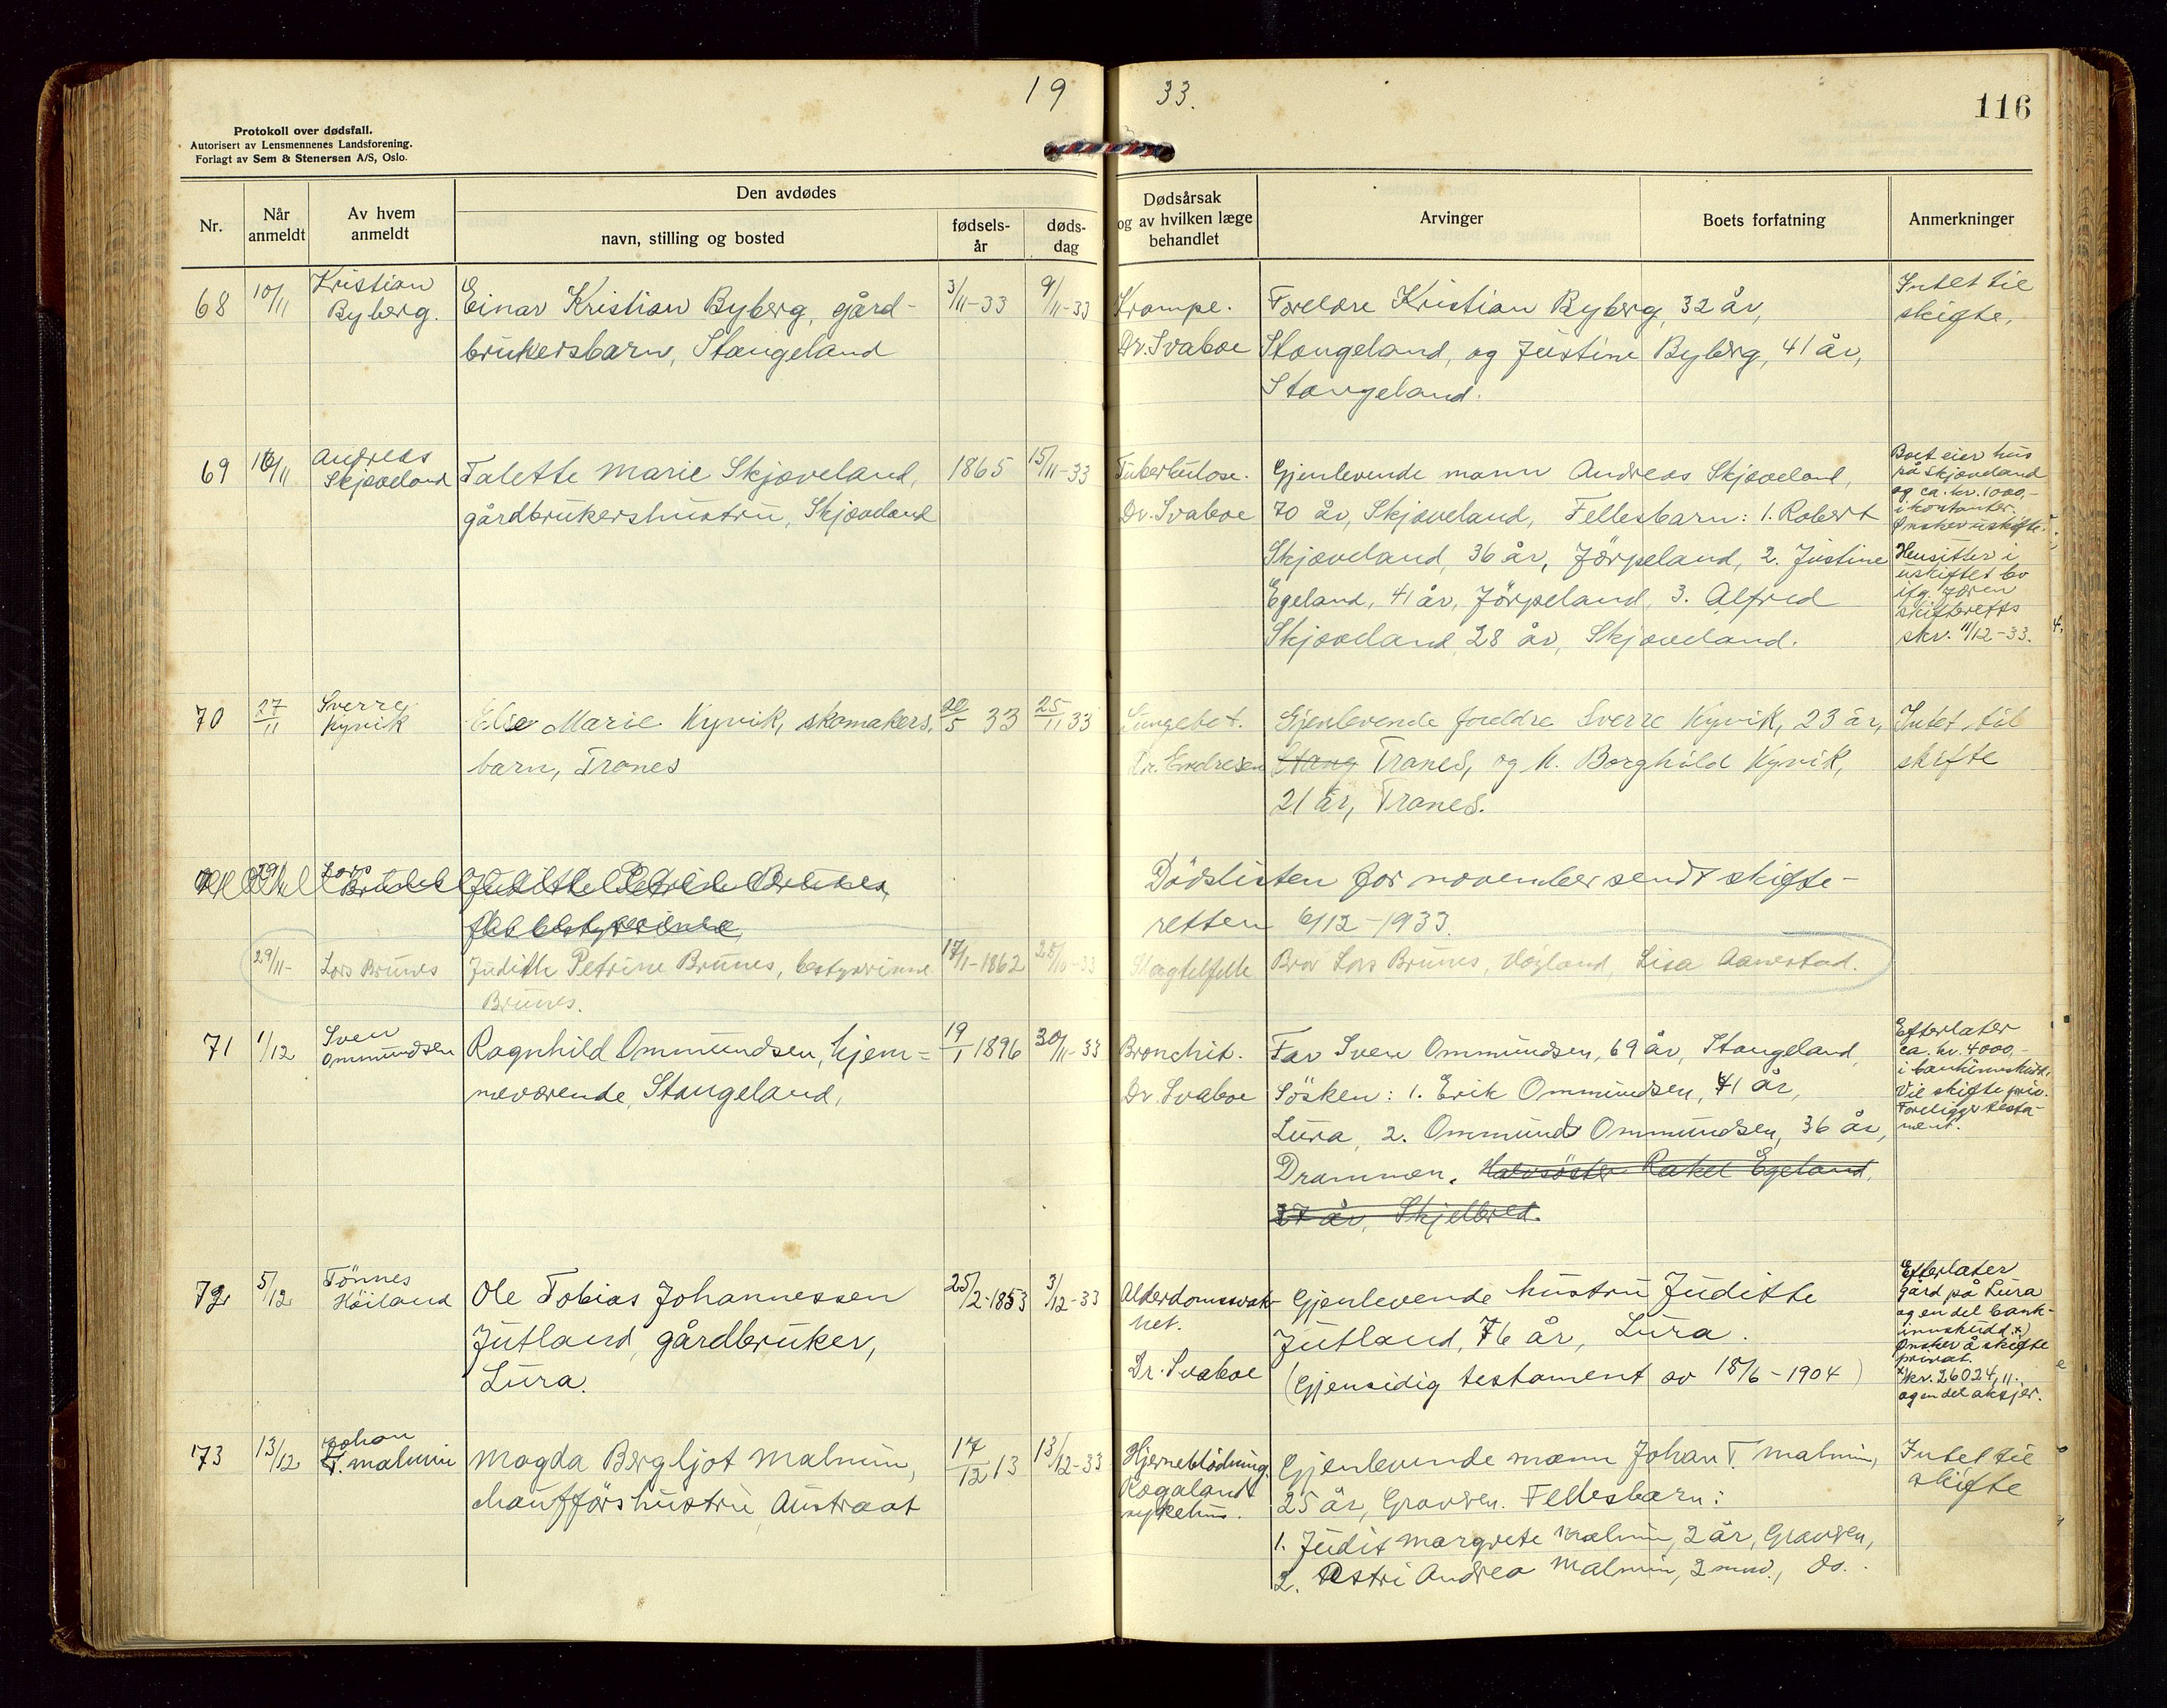 19 33.
116
Protokoll over dødsfall.
Autorisert av Lensmennenes Landsforening.
Forlagt av Sem & Stenersen A/S, Oslo.
Nr.
Når anmeldt
Av hvem anmeldt
Den avdødes
navn, stilling og bosted
fødsels-år
døds-dag
Dødsårsak og av hvilken læge behandlet
Arvinger
Boets forfatning
Anmerkninger
68 10/11 Kristian Byberg.
Einar Kristian Byberg, gård-
brukersbarn, Stangeland
3/11-33 9/11-33
Krampe.
Dr. Svaboe
Foreldre Kristian Byberg, 32 år,
Stangeland, og Justine Byberg, 41 år,
Stangeland.
Intet til
skifte.
69 16/11 Andreas Skjæveland
Talette Marie Skjæveland,
gårdbrukershustru, Skjæveland
1865 15/11-33
Tuberkulose.
Dr. Svaboe
Gjenlevende mann Andreas Skjæveland,
70 år, Skjæveland, Fellesbarn: 1. Robert
Skjæveland, 36 år, Jörpeland, 2. Justine
Egeland, 41 år, Jörpeland, 3. Alfred
Skjæveland 28 år, Skjæveland.
Boet eier hus
på Skjæveland
og ca. kr. 1000,-
i kontanter.
Ønsker uskifte.
Hensitter i
uskiftet bo
ifg. Jæren
skifteretts
skr. 11/12-33.
70 27/11 Sverre Kyvik
Else Marie Kyvik, skomakers.
barn, Tranes
20/5 33 25/11 33
Lungebet.
Dr. Endresen
Gjenlevende foreldre Sverre Kyvik, 23 år,
Stang Tranes, og K. Borghild Kyvik,
21 år, Tranes.
Intet til
skifte
Dödslisten for november sendt skifte-
retten 6/12-1933.
29/11- Lars Brunes
Judith Petrine Brunes, bestyrerinne
Brunes.
17/1-1862
Slagtilfelle
Bror Lars Brunes, Høyland, Lisa Aanestad.
71 1/12 Sven Ommundsen
Ragnhild Ommundsen, hjem=
meværende, Stangeland,
19/1 1896 30/11-33
Bronchit.
Dr. Svaboe
Far Sven Ommundsen, 69 år, Stangeland,
Søsken: 1. Erik Ommundsen, 41 år,
Lura, 2. Ommund Ommundsen, 36 år,
Drammen. Halvsöster Rakel Egeland,
27 år, Skjelbred.
Efterlater
ca. kr. 4000,-
i bankinnskudd.
Vil skifte priv.
Foreligger testa-
ment.
72 5/12 Tönnes Höiland
Ole Tobias Johannessen
Jutland, gårdbruker,
Lura.
25/2-1853 3/12-33
Alderdomssvak-
het.
Dr. Svaboe
Gjenlevende hustru Judithe
Jutland, 76 år, Lura.
(Gjensidig testament av 18/6-1904)
Efterlater
gård på Lura
og en del bank-
innskudd. x)
Ønsker å skifte
privat.
x) kr. 26024,11.
og en del aksjer.
73 13/12 Johan T. Malmin
Magda Bergljot Malmin,
chaufförshustru, Austraat
17/12 13 13/12-33
Hjerneblödning.
Rogaland
sykehus.
Gjenlevende mann Johan T. Malmin,
25 år, Gravsen. Fellesbarn:
1. Judit Margrete Malmin, 2 år, Gravsen,
2. Astri Andrea Malmin, 2 mnd., do.
Intet til
skifte